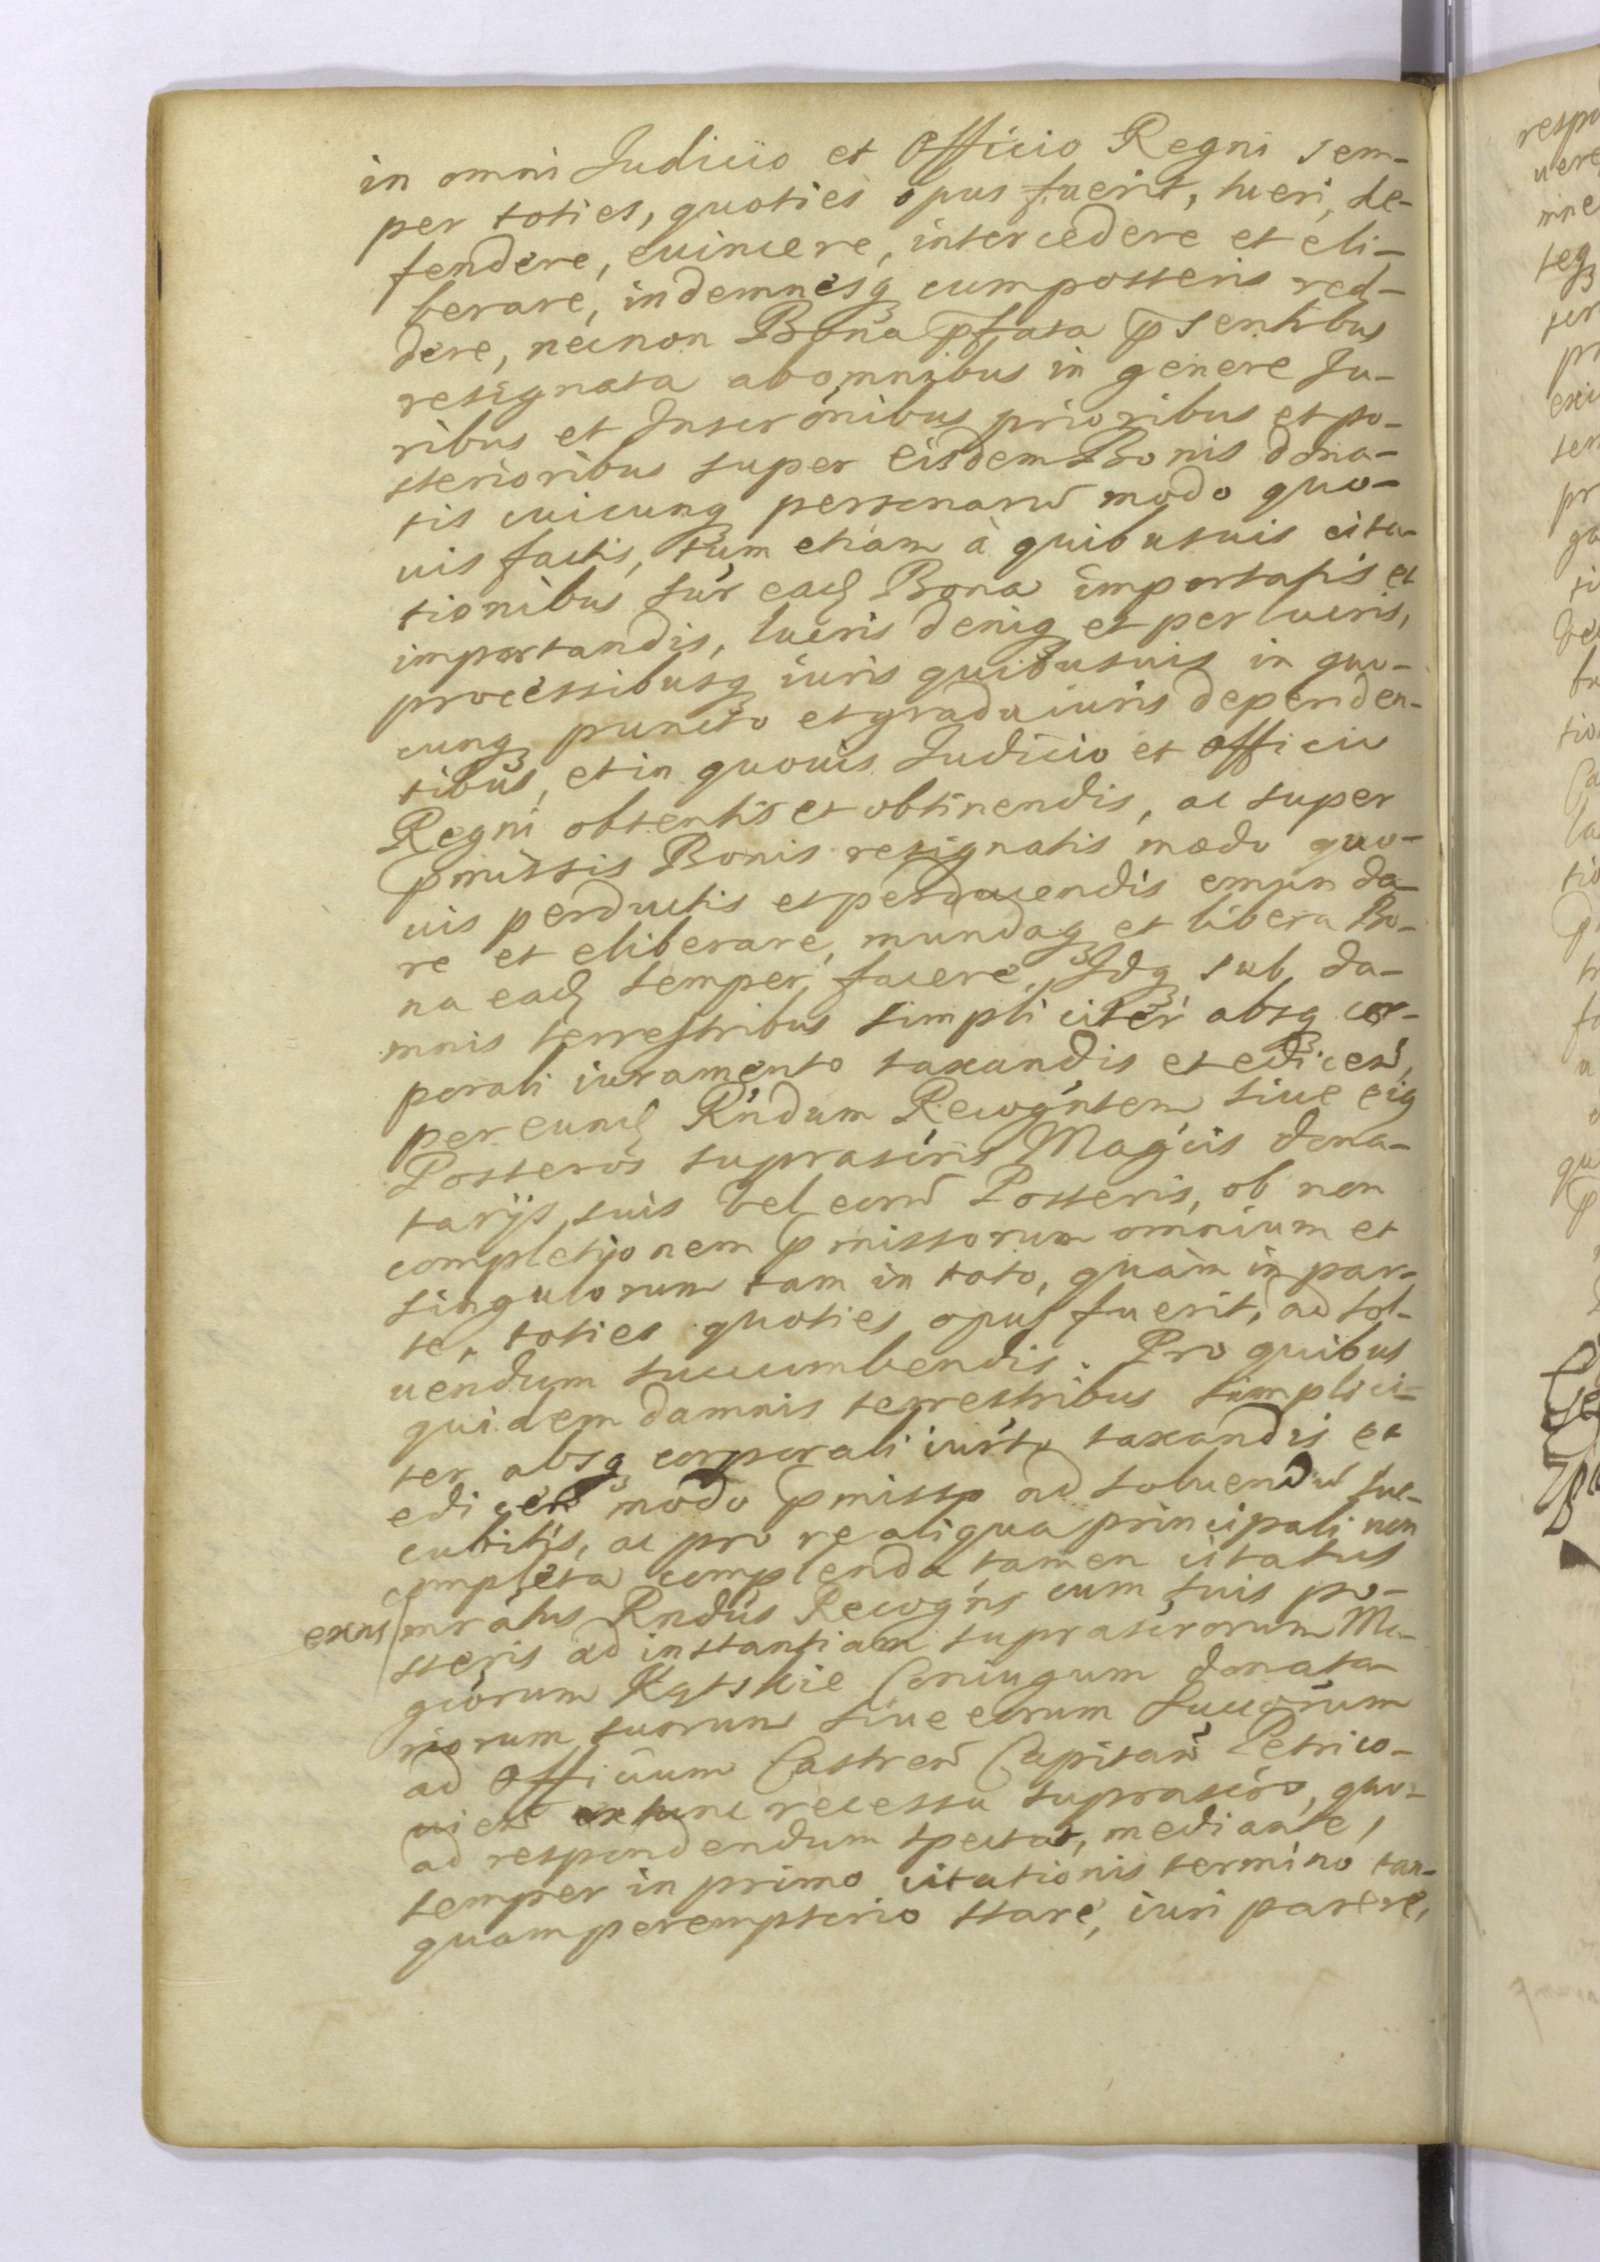 in omni Judicio et Officio Regni sem-
per toties, quoties opus fuerit, tueri, de-
fendere, euincere, intercedere et eli-
berare, indemnesq cum posteris red-
dere, necnon Bona pfata psentibus
resignata ab omnibus in genere Ju-
ribus et Inscrōnibus prioribus et po-
sterioribus super eisdem Bonis dona-
tis cuicunq personarū modo quo-
uis factis, tum etiam à quibusuis cita-
tionibus sur ead Bona importatis et
importandis, lucris deniq et perlucris,
processibusq iuris quibusuis in quo-
cunq puncto et gradu iuris dependen-
tibus, et in quouis Judicio et Officio
Regni obtentis et obtinendis, ac super
pmissis Bonis resignatis modo quo-
uis perductis et perducendis emunda-
re et eliberare, mundaq et libera Bo-
na ead semper facere. Idq sub da-
mnis terrestribus simpliciter absq cor-
porali iuramento taxandis et edicen,
per eund Rndum Recognten siue eiq
Posteros suprascris Magcis dona-
tarijs suis vel eorū Posteris, ob non
completionem pmissorum omnium et
singulorum tam in toto, quàm in par-
te, toties quoties opus fuerit, ad sol-
uendum succumbendis. Pro quibus
quidem damnis terrestribus simplici-
ter absq corporali iurto taxandis et
edicen modo pmisso ad soluendū suc-
cubitis, ac pro re aliqua principali non
completa complenda tamen citatus
exns mratus Rndus Recogns cum suis po-
steris ad instantiam suprascrorum Ma-
gcorum Kątskie Coniugum donata-
riorum suorum siue eorum Succorum
ad Officium Castren Capitan Petrico-
uien ex tunc recessu suprascro, quo
ad respondendum spectat, mediante,
semper in primo citationis termino tan-
quam peremptorio stare, iuri parere,